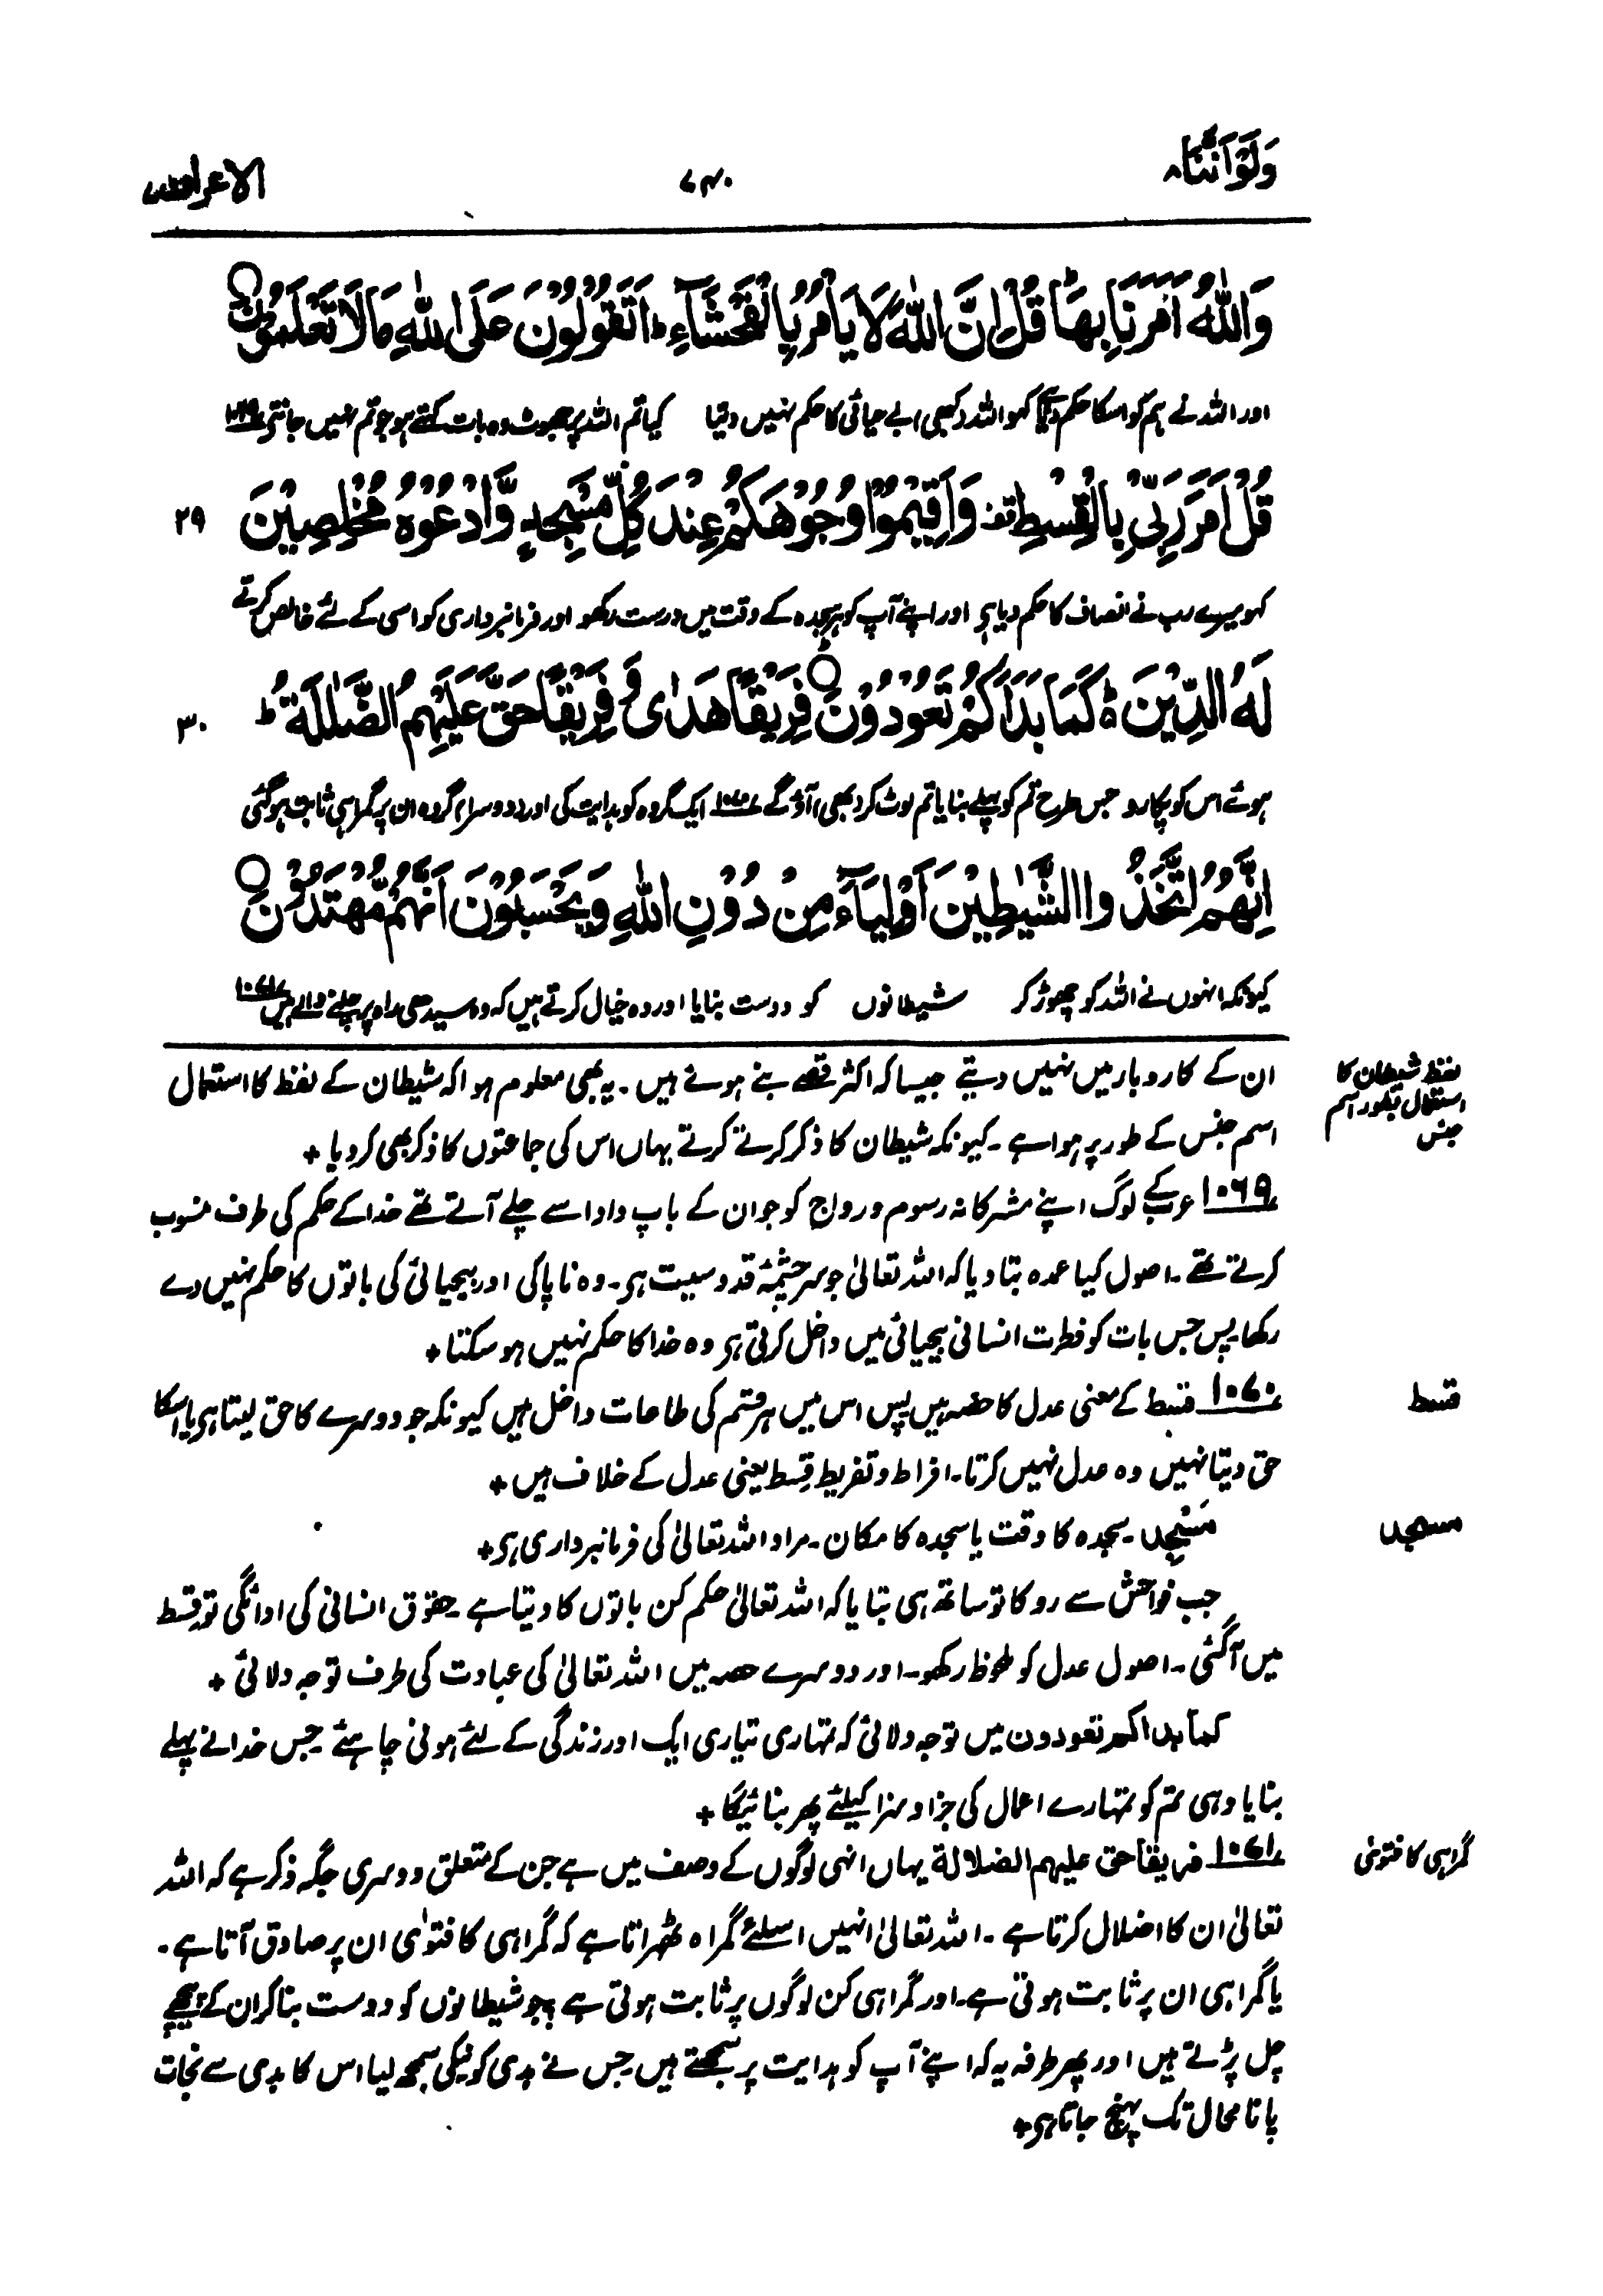 وَلَوْ اَنَّنَا ۸
۷۴۰
الاعراف ۷
وَاللّٰهُ اَمَرَنَا بِهَا ؕ قُلْ اِنَّ اللّٰهَ لَا يَاْمُرُ بِالْفَحْشَآءِ ؕ اَتَقُوْلُوْنَ عَلَى اللّٰهِ مَا لَا تَعْلَمُوْنَ ○
اور اللہ نے ہم کو اسکا حکم دیا ہے کہو اللہ (کبھی) بے حیائی کا حکم نہیں دیتا کیا تم اللہ پر جھوٹ وہ بات کہتے ہو جو تم نہیں جانتے ۱۰۶۹
قُلْ اَمَرَ رَبِّيْ بِالْقِسْطِ ۟ وَاَقِيْمُوْا وُجُوْهَكُمْ عِنْدَ كُلِّ مَسْجِدٍ وَّادْعُوْهُ مُخْلِصِيْنَ
۲۹
کہو میرے رب نے انصاف کا حکم دیا ہے اور اپنے آپ کو ہر سجدہ کے وقت میں درست رکھو اور فرمانبرداری کو اسی کے لئے خالص کرتے
لَهُ الدِّيْنَ ۵ؕ كَمَا بَدَاَكُمْ تَعُوْدُوْنَ ○ فَرِيْقًا هَدٰى وَ فَرِيْقًا حَقَّ عَلَيْهِمُ الضَّلٰلَةُ ؕ
۳۰
ہوئے اس کو پکارو جس طرح تم کو پہلے بنایا تم لوٹ کر (بھی) آؤ گے ۱۰۷۰ ایک گروہ کو ہدایت کی اور دوسرا گروہ ان پر گمراہی ثابت ہوگئی
اِنَّهُمُ اتَّخَذُوا الشَّيٰطِيْنَ اَوْلِيَآءَ مِنْ دُوْنِ اللّٰهِ وَيَحْسَبُوْنَ اَنَّهُمْ مُّهْتَدُوْنَ ○
کیونکہ انہوں نے اللہ کو چھوڑ کر شیطانوں کو دوست بنایا اور وہ خیال کرتے ہیں کہ وہ سیدھی راہ پر چلنے والے ہیں ۱۰۷۱
ان کے کاروبار میں نہیں دیتے جیسا کہ اکثر قصے بنے ہوئے ہیں۔ یہ بھی معلوم ہوا کہ شیطان کے لفظ کا استعمال
لفظ شیطان کا
استعمال بطور اسم
جنس
اسم جنس کے طور پر ہوا ہے۔ کیونکہ شیطان کا ذکر کرتے کرتے یہاں اس کی جماعتوں کا ذکر بھی کردیا +
۱۰۶۹ عرب کے لوگ اپنے مشرکانہ رسوم و رواج کو جو ان کے باپ دادا سے چلے آتے تھے خدا کے حکم کی طرف منسوب
کرتے تھے۔ اصول کیا عمدہ بتا دیا کہ اللہ تعالیٰ جو سرچشمۂ قدوسیت ہے۔ وہ ناپاکی اور بیحیائی کی باتوں کا حکم نہیں دے
رکھا پس جس بات کو فطرت انسانی بیحیائی میں داخل کرتی ہے وہ خدا کا حکم نہیں ہو سکتا +
۱۰۷۰ قسط کے معنی عدل کا حصہ ہیں پس اس میں ہر قسم کی طاعات داخل ہیں کیونکہ جو دوسرے کا حق لیتا ہے یا اسکا
قسط
حق دیتا نہیں وہ عدل نہیں کرتا۔ افراط و تفریط قِسط یعنی عدل کے خلاف ہیں +
مَسْجِد۔ سجدہ کا وقت یا سجدہ کا مکان۔ مراد اللہ تعالیٰ کی فرمانبرداری ہے +
مسجد
جب فواحش سے روکا تو ساتھ ہی بتایا کہ اللہ تعالیٰ حکم کن باتوں کا دیتا ہے۔ حقوق انسانی کی ادائگی تو قسط
میں آگئی۔ اصول عدل کو ملحوظ رکھو۔ اور دوسرے حصہ میں اللہ تعالیٰ کی عبادت کی طرف توجہ دلائی +
کما بدا کم تعودون میں توجہ دلائی کہ تمہاری تیاری ایک اور زندگی کے لئے ہونی چاہئے جس خدا نے پہلے
بنایا وہی تم کو تمہارے اعمال کی جزا و سزا کیلئے پھر بنائیگا +
۱۰۷۱ فریقا حق علیہم الضلالۃ یہاں انہی لوگوں کے وصف میں ہے جن کے متعلق دوسری جگہ ذکر ہے کہ اللہ
گمراہی کا فتویٰ
تعالیٰ ان کا اضلال کرتا ہے۔ اللہ تعالیٰ انہیں اسلئے گمراہ ٹھہراتا ہے کہ گمراہی کا فتوٰی ان پر صادق آتا ہے۔
یا گمراہی ان پر ثابت ہوتی ہے۔ اور گمراہی کن لوگوں پر ثابت ہوتی ہے؟ جو شیطانوں کو دوست بنا کر ان کے پیچھے
چل پڑتے ہیں اور پھر طرفہ یہ کہ اپنے آپ کو ہدایت پر سمجھتے ہیں۔ جس نے بدی کو نیکی سمجھ لیا اس کا بدی سے نجات
پانا محال تک پہنچ جاتا ہے +